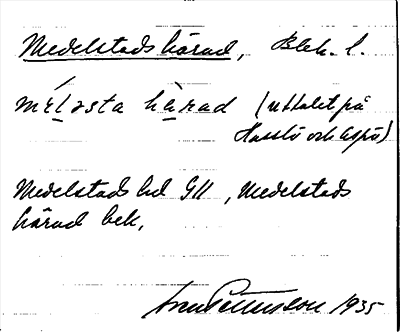 Medelstads härad, Blek. l.
mèləsta hä̀rad (uttalet på
Hasslö och Aspö)
Medelstads hd GII, Medelstads
härad bek.
Pettersson 1935